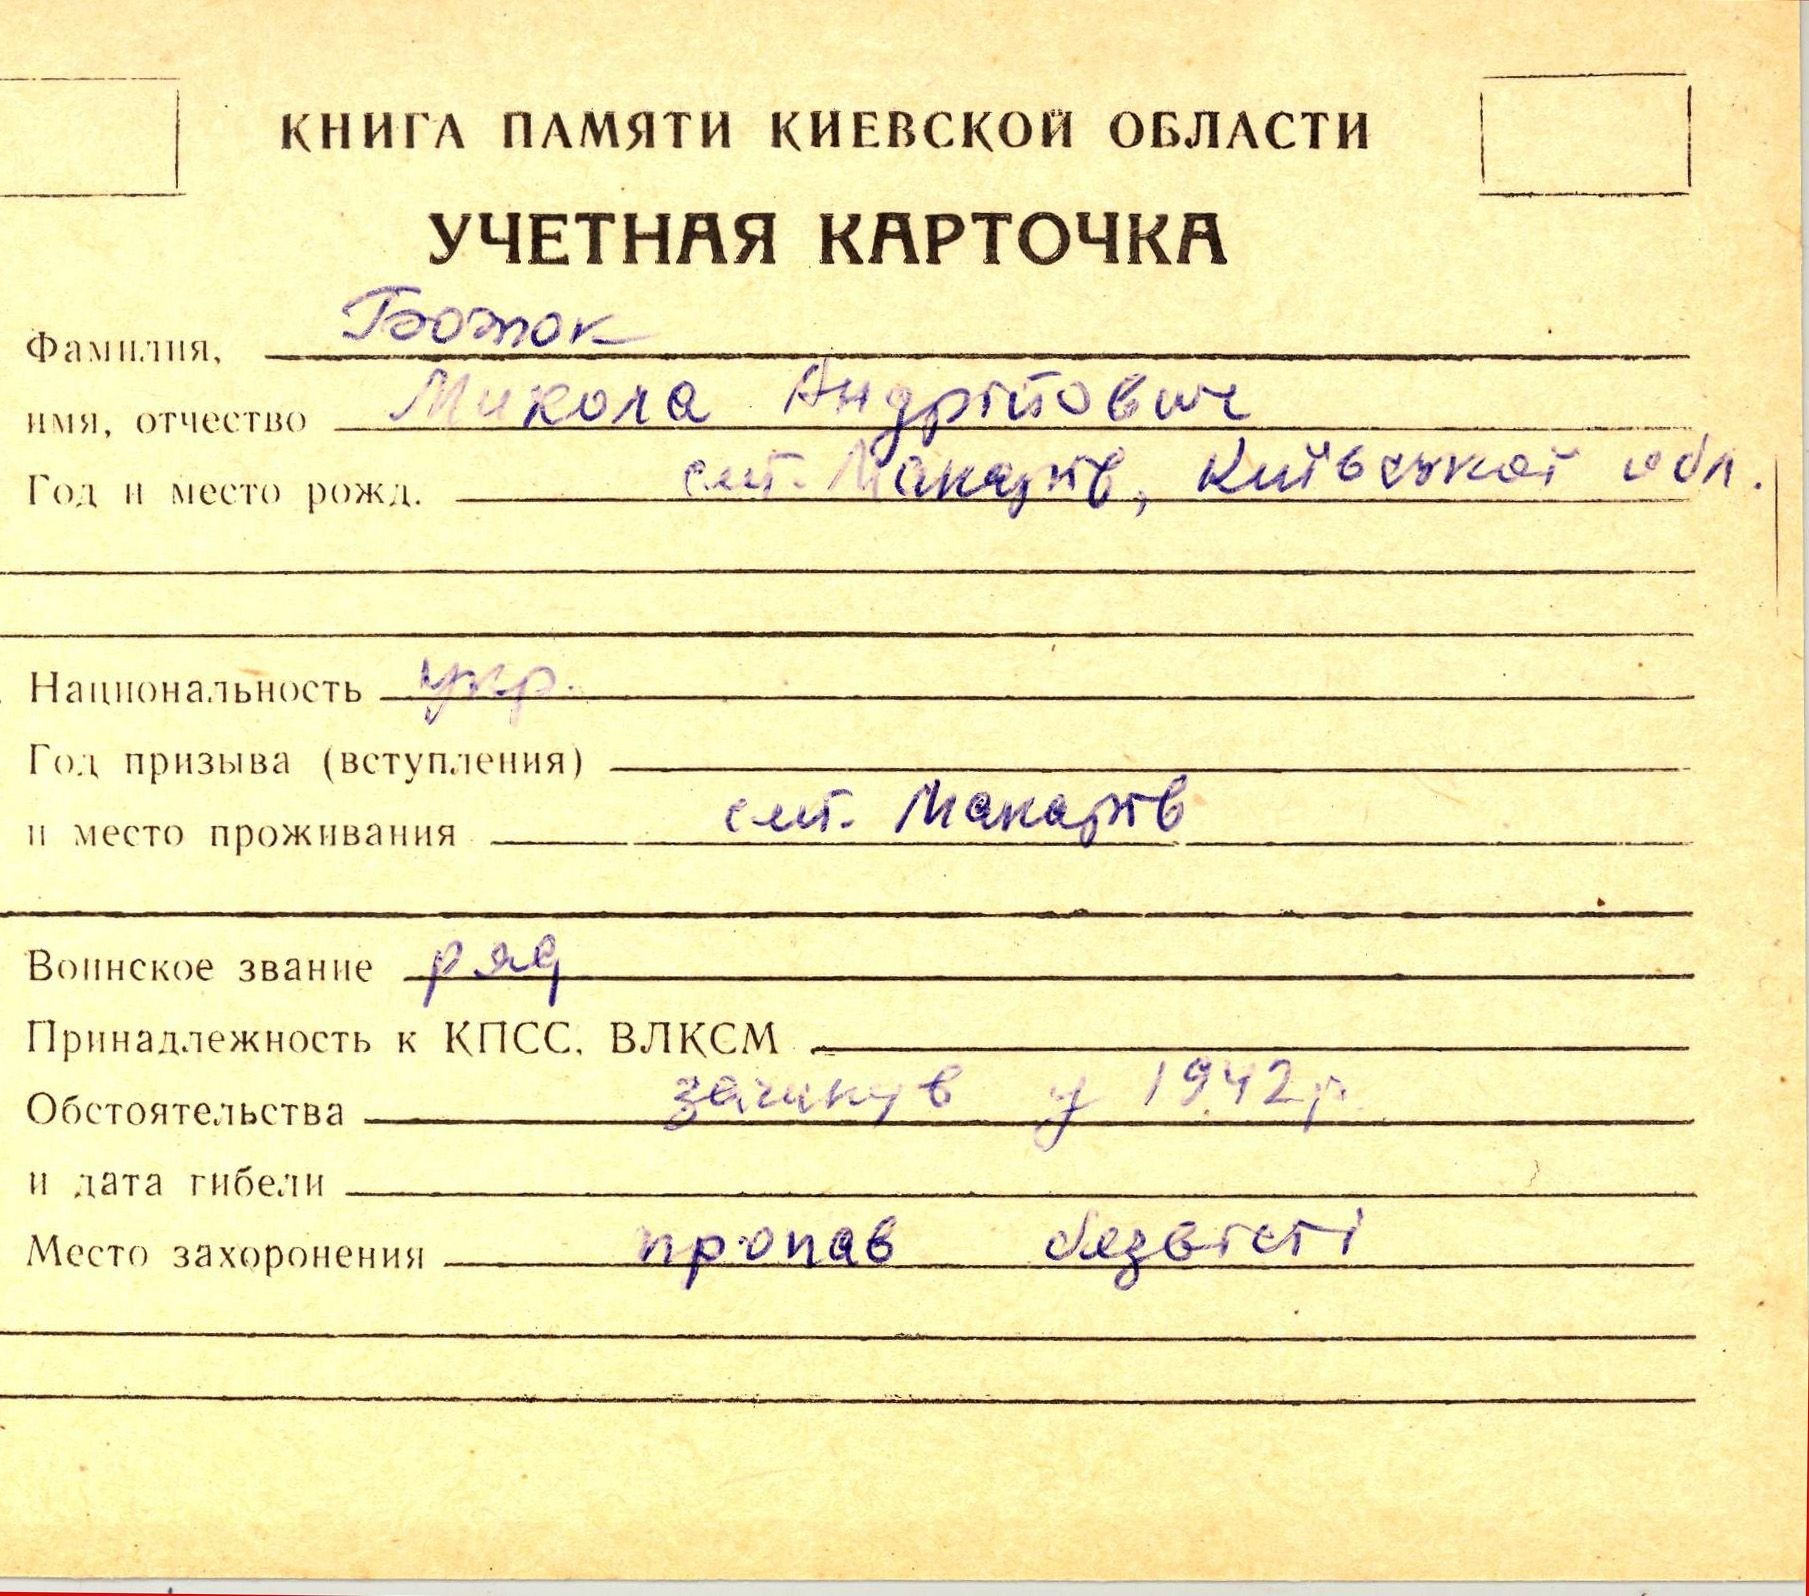 КНИГА ПАМЯТИ КИЕВСКОЙ ОБЛАСТИ
УЧЕТНАЯ КАРТОЧКА
Фамилия, Божок
имя, отчество Микола Андрійович
Год и место рожд. смт. Макарів, Київської обл.
Национальность укр.
Год призыва (вступления)
и место проживания смт. Макарів
Воинское звание ряд
Принадлежность к КПСС, ВЛКСМ
Обстоятельства загинув у 1942р.
и дата гибели
Место захоронения пропав безвісті